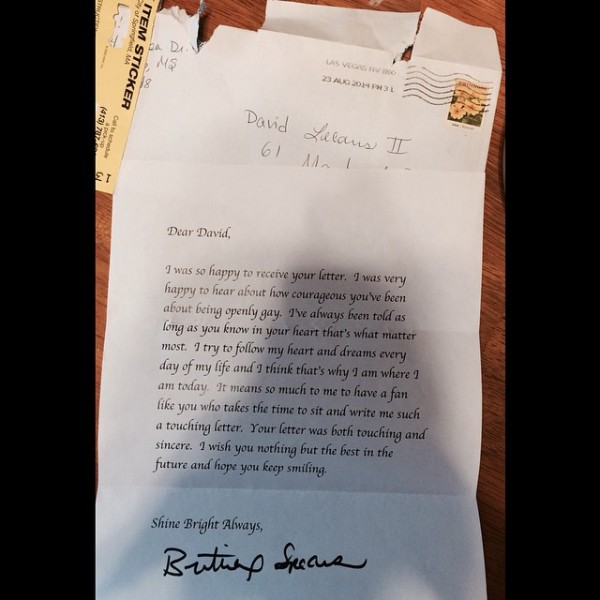 ITEM STICKER
City of Springfield, MA
Call to schedule
a pick-up
(413) 787
LAS VEGAS NV 890
23 AUG 2014 PM 3 L
David II
61
Dear David,
I was so happy to receive your letter. I was very
happy to hear about how courageous you've been
about being openly gay. I've always been told as
long as you know in your heart that's what matter
most. I try to follow my heart and dreams every
day of my life and I think that's why I am where I
am today. It means so much to me to have a fan
like you who takes the time to sit and write me such
a touching letter. Your letter was both touching and
sincere. I wish you nothing but the best in the
future and hope you keep smiling.
Shine Bright Always,
Britney Spears